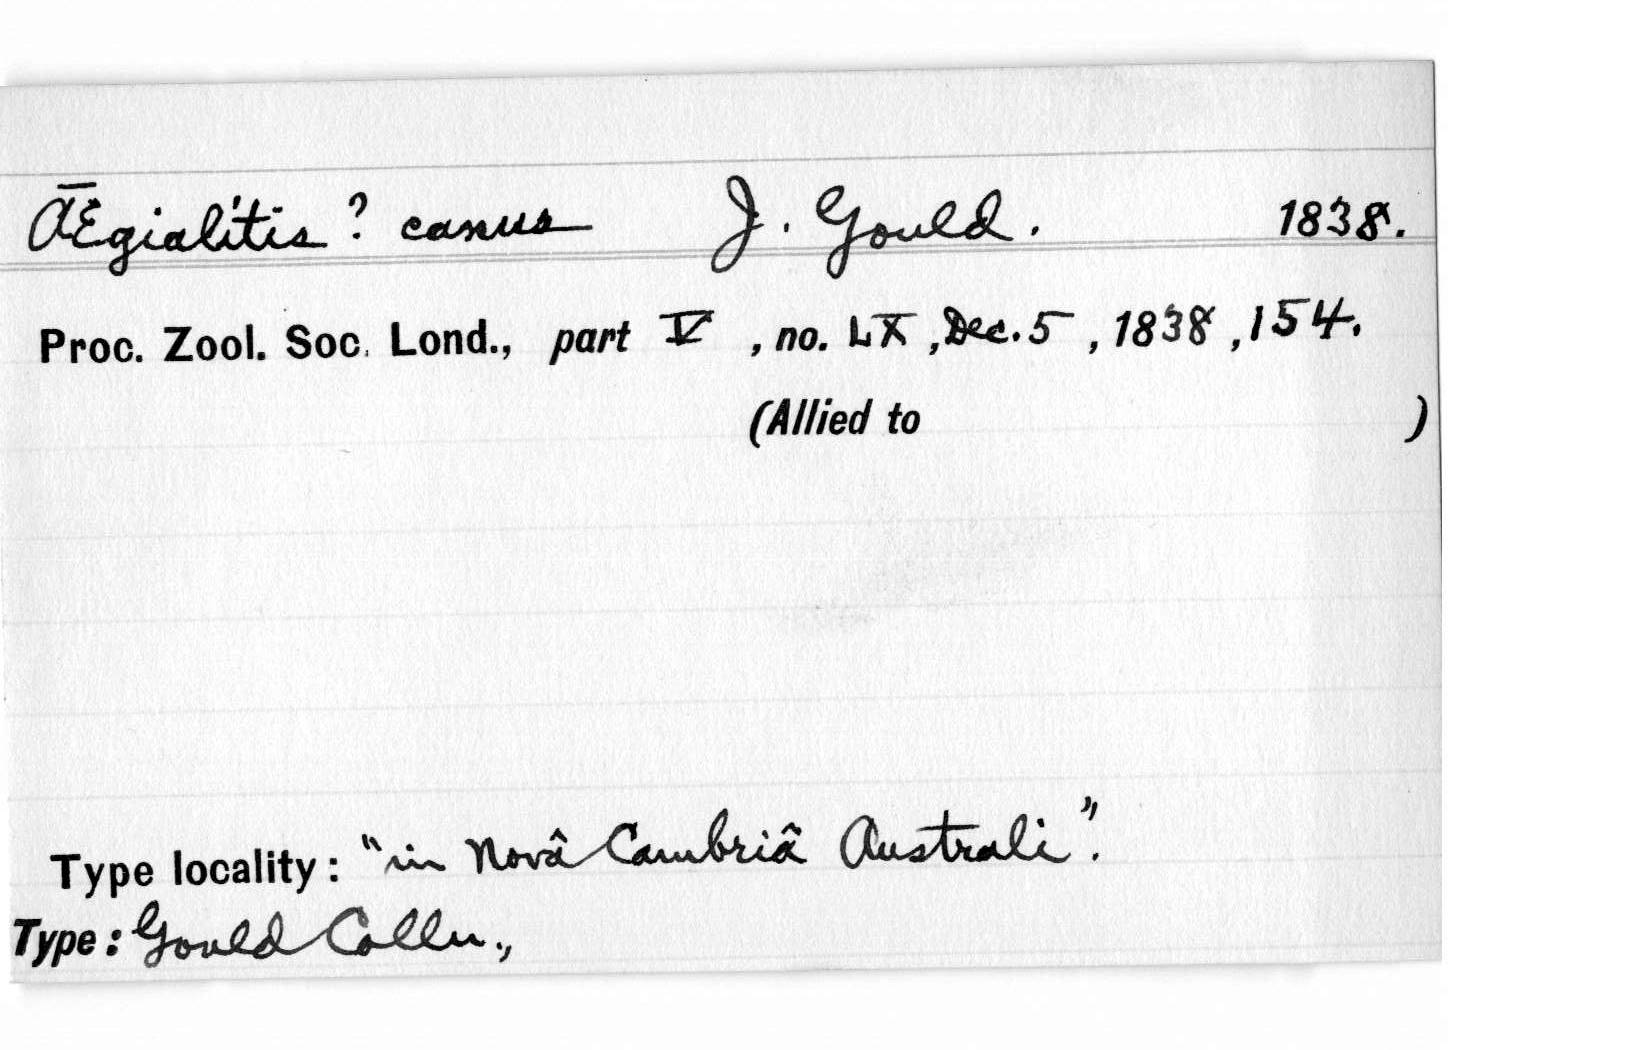 Ægialitis? canus J. Gould. 1838.
Proc. Zool. Soc. Lond., part V, no. LX, Dec. 5, 1838, 154.
(Allied to )
Type locality: "in Novâ Cambriâ Australi".
Type: Gould Colln.,